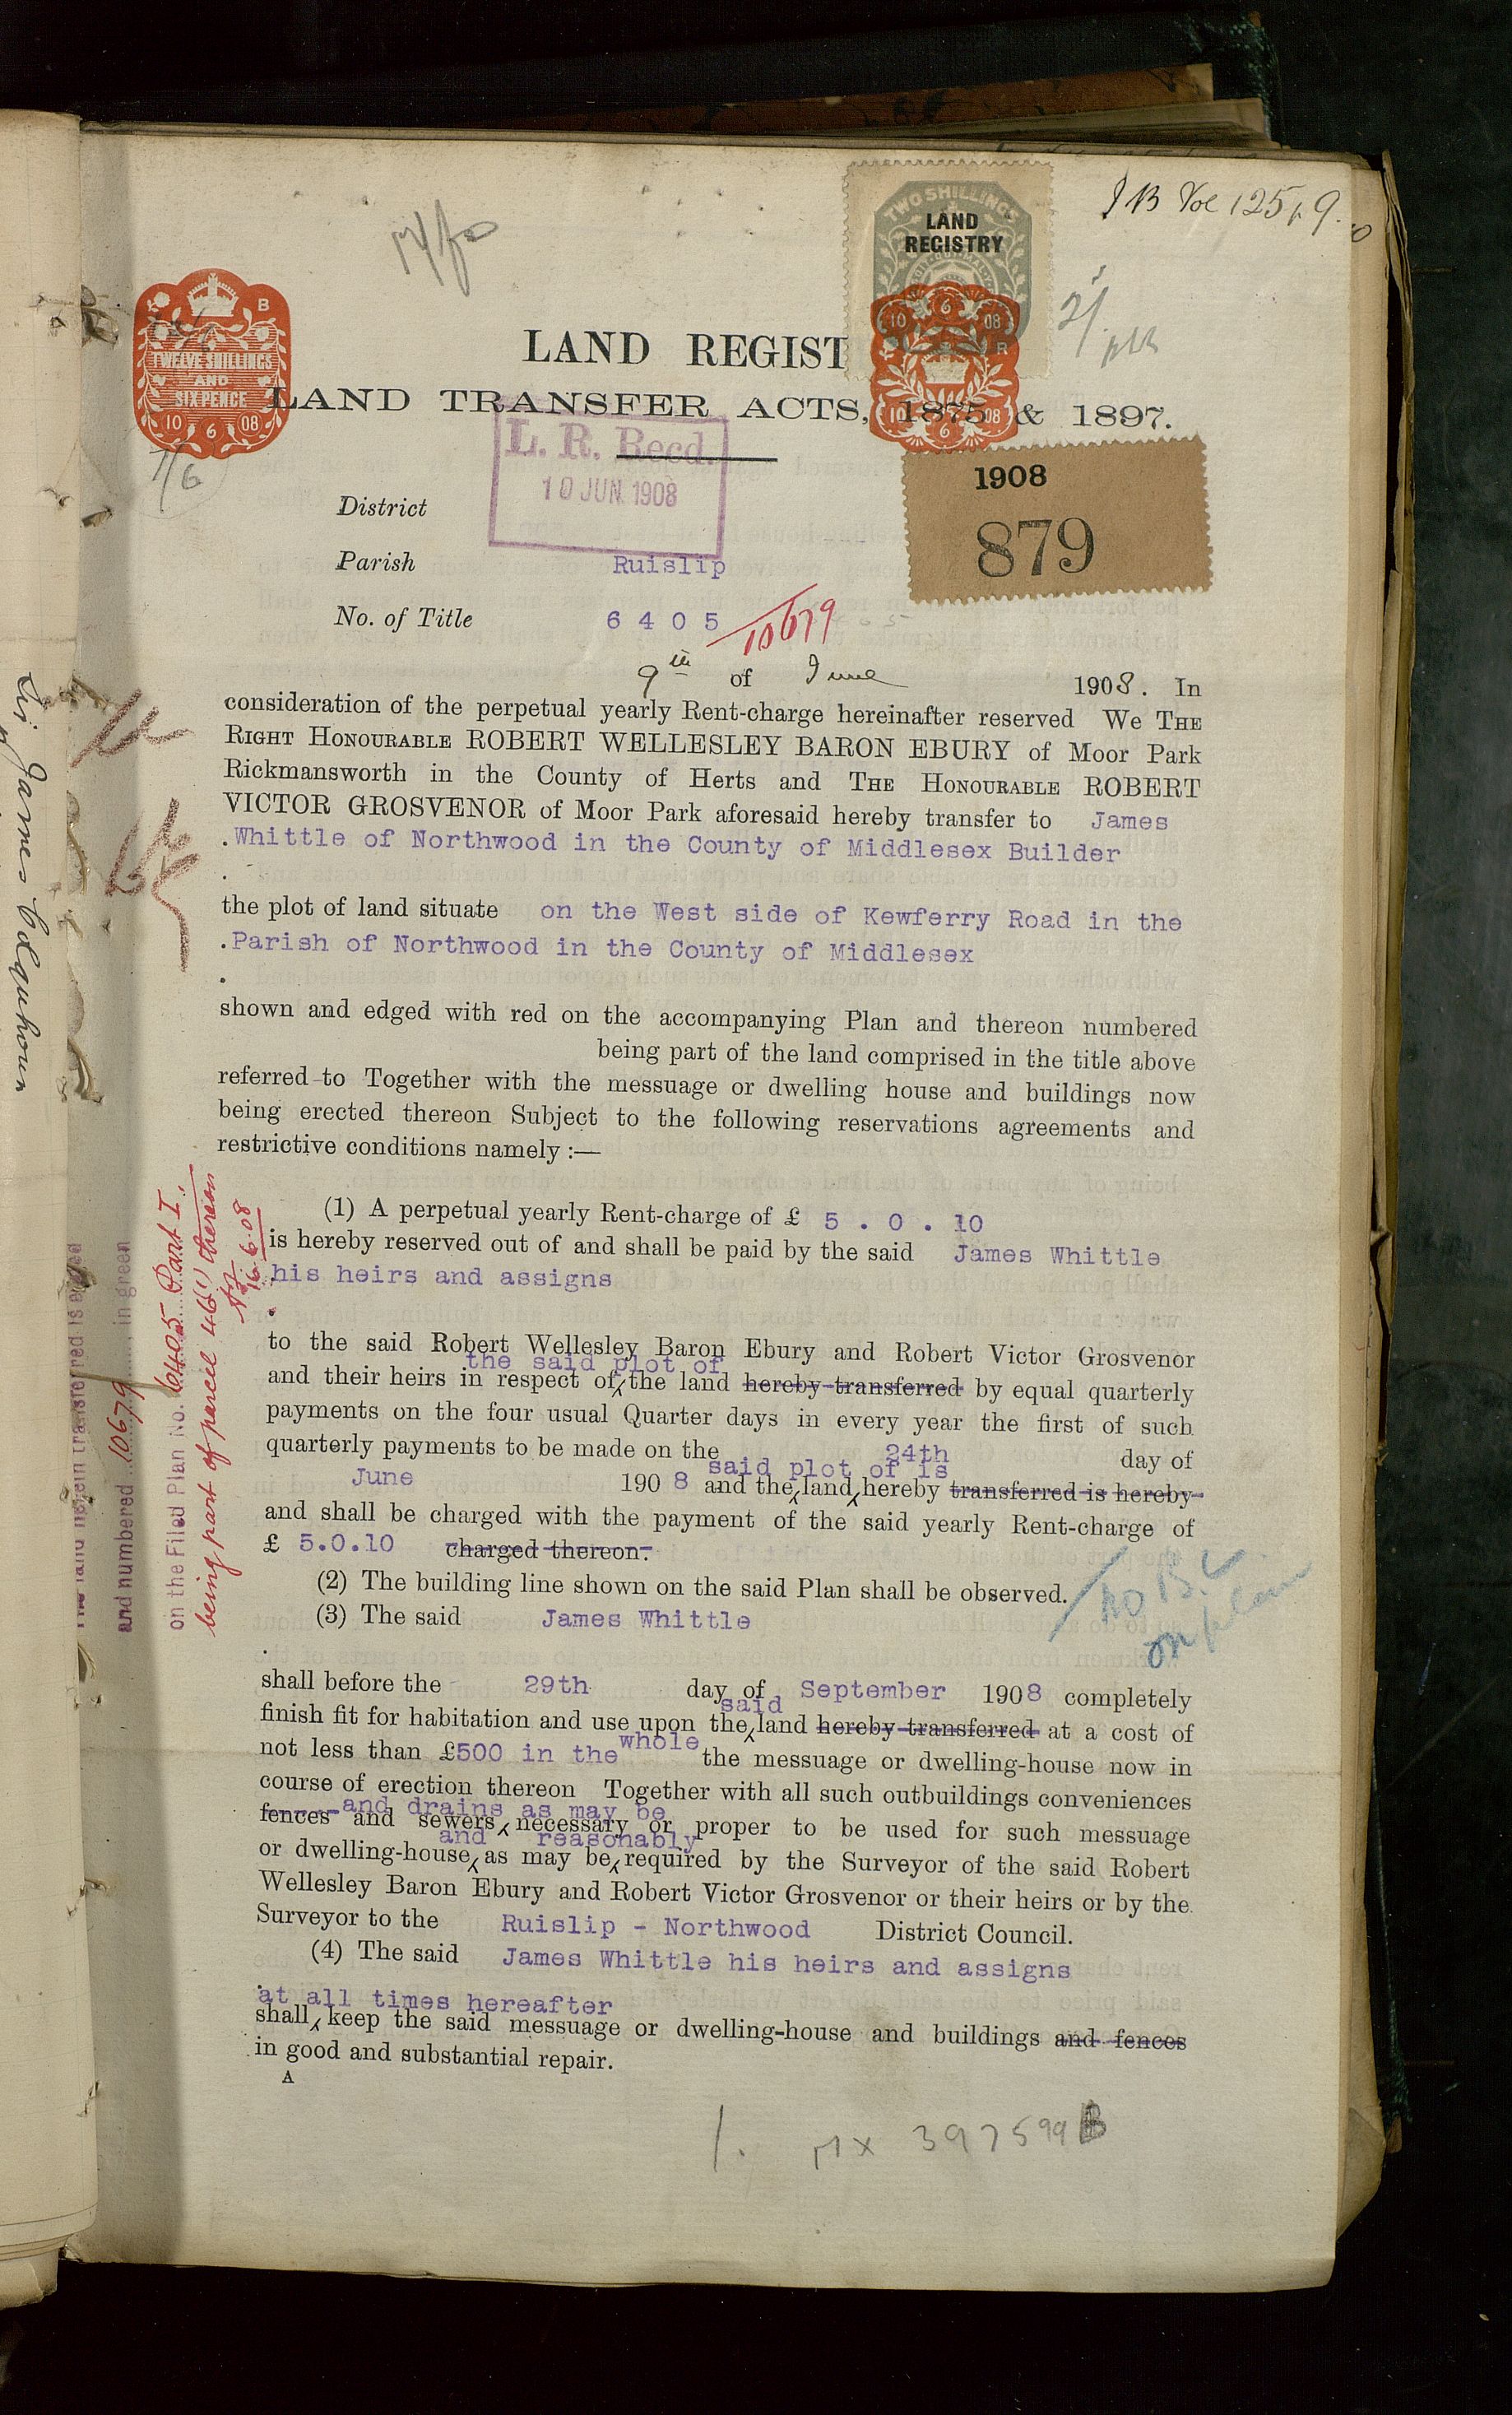 J B Vol 125 p 9.
TWO SHILLINGS
LAND
REGISTRY
10 6 08
2/
B
TWELVE SHILLINGS
AND
SIX PENCE
10 6 08
7/6
LAND REGIST
R
10 6 08
LAND TRANSFER ACTS, 1875 & 1897.
L. R. Recd.
10 JUN. 1908
1908
879
District
Parish Ruislip
No. of Title 6 4 0 5 10679
9th of June 1908. In
consideration of the perpetual yearly Rent-charge hereinafter reserved We THE
RIGHT HONOURABLE ROBERT WELLESLEY BARON EBURY of Moor Park
Rickmansworth in the County of Herts and THE HONOURABLE ROBERT
VICTOR GROSVENOR of Moor Park aforesaid hereby transfer to James
Whittle of Northwood in the County of Middlesex Builder
the plot of land situate on the West side of Kewferry Road in the
Parish of Northwood in the County of Middlesex
shown and edged with red on the accompanying Plan and thereon numbered
being part of the land comprised in the title above
referred to Together with the messuage or dwelling house and buildings now
being erected thereon Subject to the following reservations agreements and
restrictive conditions namely :—
(1) A perpetual yearly Rent-charge of £ 5 . 0 . 10
is hereby reserved out of and shall be paid by the said James Whittle
his heirs and assigns
to the said Robert Wellesley Baron Ebury and Robert Victor Grosvenor
the said plot of
and their heirs in respect of the land hereby transferred by equal quarterly
payments on the four usual Quarter days in every year the first of such
quarterly payments to be made on the 24th day of
said plot of is
June 190 8 and the land hereby transferred is hereby
and shall be charged with the payment of the said yearly Rent-charge of
£ 5.0.10 charged thereon.
(2) The building line shown on the said Plan shall be observed.
no B. L
on plan
(3) The said James Whittle
shall before the 29th day of September 1908 completely
said
finish fit for habitation and use upon the land hereby transferred at a cost of
whole
not less than £500 in the the messuage or dwelling-house now in
course of erection thereon Together with all such outbuildings conveniences
and drains as may be
fences and sewers necessary or proper to be used for such messuage
and reasonably
or dwelling-house as may be required by the Surveyor of the said Robert
Wellesley Baron Ebury and Robert Victor Grosvenor or their heirs or by the
Surveyor to the Ruislip - Northwood District Council.
(4) The said James Whittle his heirs and assigns
at all times hereafter
shall keep the said messuage or dwelling-house and buildings and fences
in good and substantial repair.
A
1. MX 397599 B
The land herein transferred is edged
and numbered 10679 in green
on the Filed Plan No. 6405 Part I.
being part of parcel 46(1) thereon
16.6.08
Sir James Colquhoun